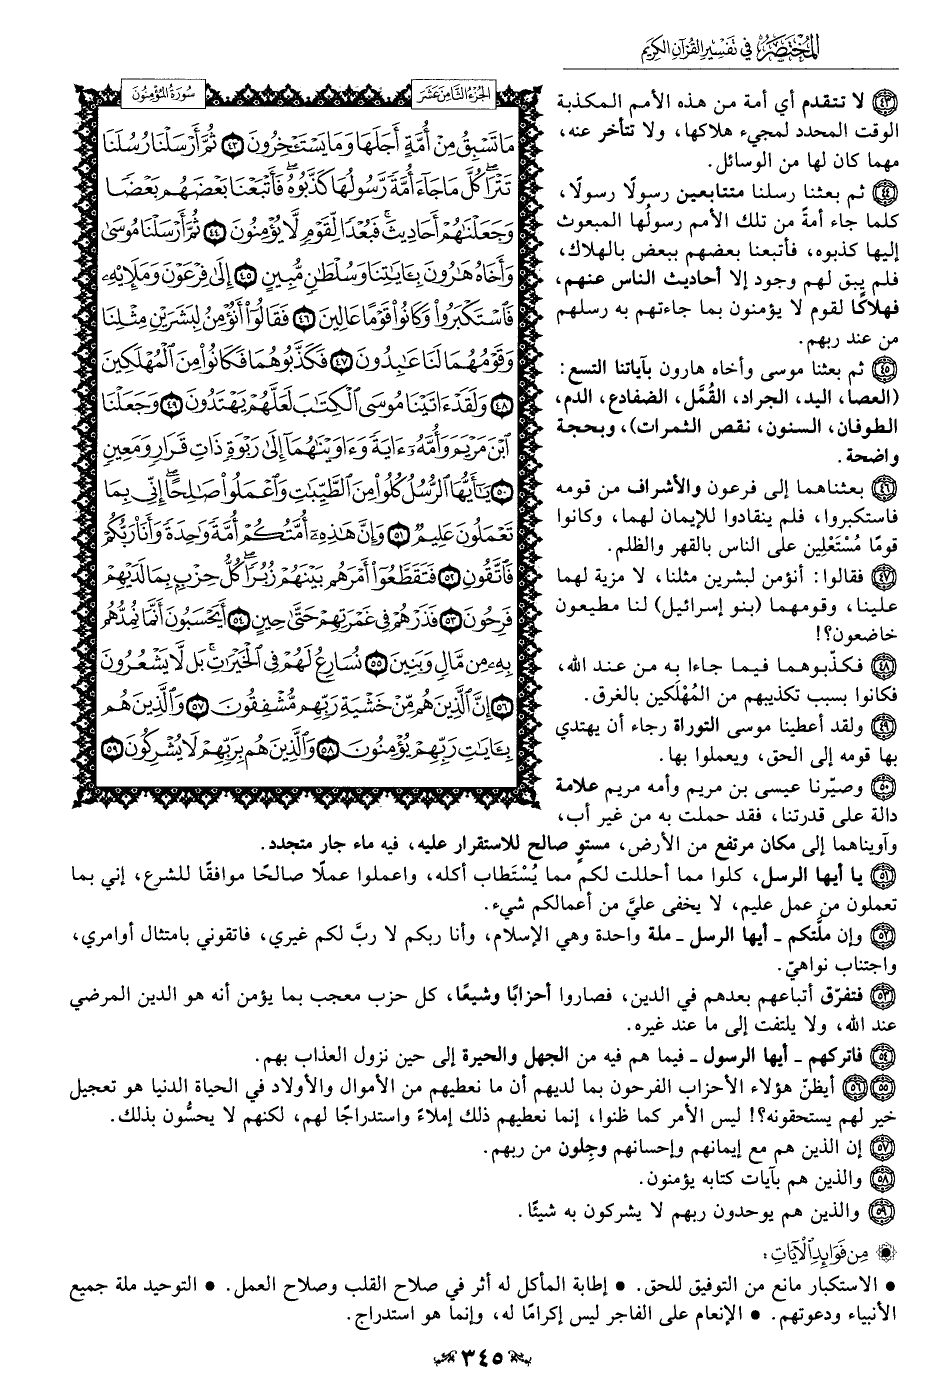 المختصر في تفسير القرآن الكريم
الجزء الثامن عشر
سورة المؤمنون
مَا تَسْبِقُ مِنْ أُمَّةٍ أَجَلَهَا وَمَا يَسْتَـْٔخِرُونَ ٤٣ ثُمَّ أَرْسَلْنَا رُسُلَنَا
تَتْرَا ۖ كُلَّ مَا جَآءَ أُمَّةً رَّسُولُهَا كَذَّبُوهُ ۚ فَأَتْبَعْنَا بَعْضَهُم بَعْضًا
وَجَعَلْنَٰهُمْ أَحَادِيثَ ۚ فَبُعْدًا لِّقَوْمٍ لَّا يُؤْمِنُونَ ٤٤ ثُمَّ أَرْسَلْنَا مُوسَىٰ
وَأَخَاهُ هَٰرُونَ بِـَٔايَٰتِنَا وَسُلْطَٰنٍ مُّبِينٍ ٤٥ إِلَىٰ فِرْعَوْنَ وَمَلَإِي۟هِۦ
فَٱسْتَكْبَرُوا۟ وَكَانُوا۟ قَوْمًا عَالِينَ ٤٦ فَقَالُوٓا۟ أَنُؤْمِنُ لِبَشَرَيْنِ مِثْلِنَا
وَقَوْمُهُمَا لَنَا عَٰبِدُونَ ٤٧ فَكَذَّبُوهُمَا فَكَانُوا۟ مِنَ ٱلْمُهْلَكِينَ
٤٨ وَلَقَدْ ءَاتَيْنَا مُوسَى ٱلْكِتَٰبَ لَعَلَّهُمْ يَهْتَدُونَ ٤٩ وَجَعَلْنَا
ٱبْنَ مَرْيَمَ وَأُمَّهُۥٓ ءَايَةً وَءَاوَيْنَٰهُمَآ إِلَىٰ رَبْوَةٍ ذَاتِ قَرَارٍ وَمَعِينٍ
٥٠ يَٰٓأَيُّهَا ٱلرُّسُلُ كُلُوا۟ مِنَ ٱلطَّيِّبَٰتِ وَٱعْمَلُوا۟ صَٰلِحًا ۖ إِنِّى بِمَا
تَعْمَلُونَ عَلِيمٌ ٥١ وَإِنَّ هَٰذِهِۦٓ أُمَّتُكُمْ أُمَّةً وَٰحِدَةً وَأَنَا۠ رَبُّكُمْ
فَٱتَّقُونِ ٥٢ فَتَقَطَّعُوٓا۟ أَمْرَهُم بَيْنَهُمْ زُبُرًا ۖ كُلُّ حِزْبٍۭ بِمَا لَدَيْهِمْ
فَرِحُونَ ٥٣ فَذَرْهُمْ فِى غَمْرَتِهِمْ حَتَّىٰ حِينٍ ٥٤ أَيَحْسَبُونَ أَنَّمَا نُمِدُّهُم
بِهِۦ مِن مَّالٍ وَبَنِينَ ٥٥ نُسَارِعُ لَهُمْ فِى ٱلْخَيْرَٰتِ ۚ بَل لَّا يَشْعُرُونَ
٥٦ إِنَّ ٱلَّذِينَ هُم مِّنْ خَشْيَةِ رَبِّهِم مُّشْفِقُونَ ٥٧ وَٱلَّذِينَ هُم
بِـَٔايَٰتِ رَبِّهِمْ يُؤْمِنُونَ ٥٨ وَٱلَّذِينَ هُم بِرَبِّهِمْ لَا يُشْرِكُونَ ٥٩
٤٣ لا تتقدم أي أمة من هذه الأمم المكذبة
الوقت المحدد لمجيء هلاكها، ولا تتأخر عنه،
مهما كان لها من الوسائل.
٤٤ ثم بعثنا رسلنا متتابعين رسولًا رسولًا،
كلما جاء أمةً من تلك الأمم رسولُها المبعوث
إليها كذبوه، فأتبعنا بعضهم ببعض بالهلاك،
فلم يبق لهم وجود إلا أحاديث الناس عنهم،
فهلاكًا لقوم لا يؤمنون بما جاءتهم به رسلهم
من عند ربهم.
٤٥ ثم بعثنا موسى وأخاه هارون بآياتنا التسع:
(العصا، اليد، الجراد، القُمَّل، الضفادع، الدم،
الطوفان، السنون، نقص الثمرات)، وبحجة
واضحة.
٤٦ بعثناهما إلى فرعون والأشراف من قومه
فاستكبروا، فلم ينقادوا للإيمان لهما، وكانوا
قومًا مُسْتَعْلِين على الناس بالقهر والظلم.
٤٧ فقالوا: أنؤمن لبشرين مثلنا، لا مزية لهما
علينا، وقومهما (بنو إسرائيل) لنا مطيعون
خاضعون؟!
٤٨ فكذّبوهما فيما جاءا به من عند الله،
فكانوا بسبب تكذيبهم من المُهْلَكين بالغرق.
٤٩ ولقد أعطينا موسى التوراة رجاء أن يهتدي
بها قومه إلى الحق، ويعملوا بها.
٥٠ وصيّرنا عيسى بن مريم وأمه مريم علامة
دالة على قدرتنا، فقد حملت به من غير أب،
وآويناهما إلى مكان مرتفع من الأرض، مستوٍ صالح للاستقرار عليه، فيه ماء جار متجدد.
٥١ يا أيها الرسل، كلوا مما أحللت لكم مما يُسْتَطاب أكله، واعملوا عملًا صالحًا موافقًا للشرع، إني بما
تعملون من عمل عليم، لا يخفى عليَّ من أعمالكم شيء.
٥٢ وإن ملَّتكم ـ أيها الرسل ـ ملة واحدة وهي الإسلام، وأنا ربكم لا ربَّ لكم غيري، فاتقوني بامتثال أوامري،
واجتناب نواهيّ.
٥٣ فتفرّق أتباعهم بعدهم في الدين، فصاروا أحزابًا وشيعًا، كل حزب معجب بما يؤمن أنه هو الدين المرضي
عند الله، ولا يلتفت إلى ما عند غيره.
٥٤ فاتركهم ـ أيها الرسول ـ فيما هم فيه من الجهل والحيرة إلى حين نزول العذاب بهم.
٥٥ ٥٦ أيظنّ هؤلاء الأحزاب الفرحون بما لديهم أن ما نعطيهم من الأموال والأولاد في الحياة الدنيا هو تعجيل
خير لهم يستحقونه؟! ليس الأمر كما ظنوا، إنما نعطيهم ذلك إملاءً واستدراجًا لهم، لكنهم لا يحسُّون بذلك.
٥٧ إن الذين هم مع إيمانهم وإحسانهم وجِلون من ربهم.
٥٨ والذين هم بآيات كتابه يؤمنون.
٥٩ والذين هم يوحدون ربهم لا يشركون به شيئًا.
من فوائد الآيات:
• الاستكبار مانع من التوفيق للحق. • إطابة المأكل له أثر في صلاح القلب وصلاح العمل. • التوحيد ملة جميع
الأنبياء ودعوتهم. • الإنعام على الفاجر ليس إكرامًا له، وإنما هو استدراج.
٣٤٥